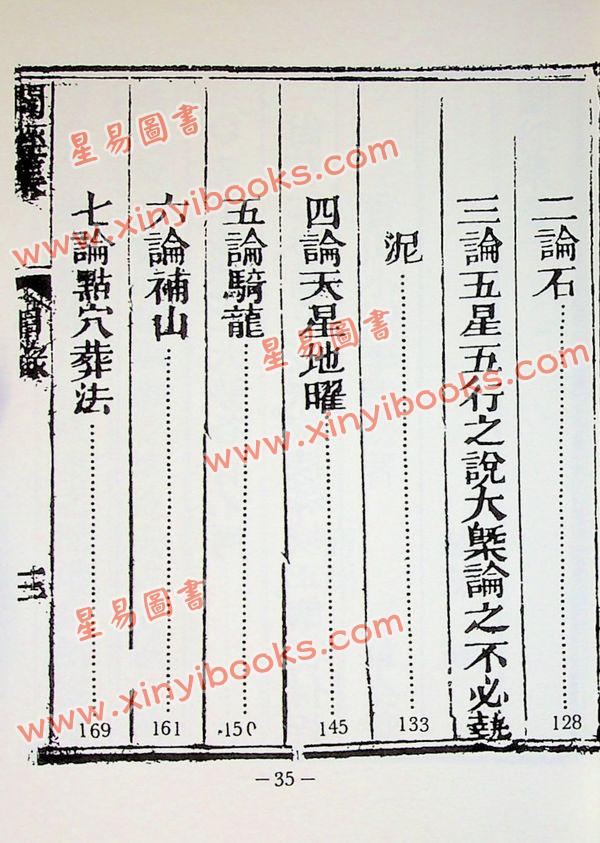 二論石 128
三論五星五行之說大槩論之不必執
泥 133
四論天星地曜 145
五論騎龍 150
六論補山 161
七論點穴葬法 169
目錄
—35—
星易圖書
www.xinyibooks.com
星易圖書
www.xinyibooks.com
星易圖書
www.xinyibooks.com